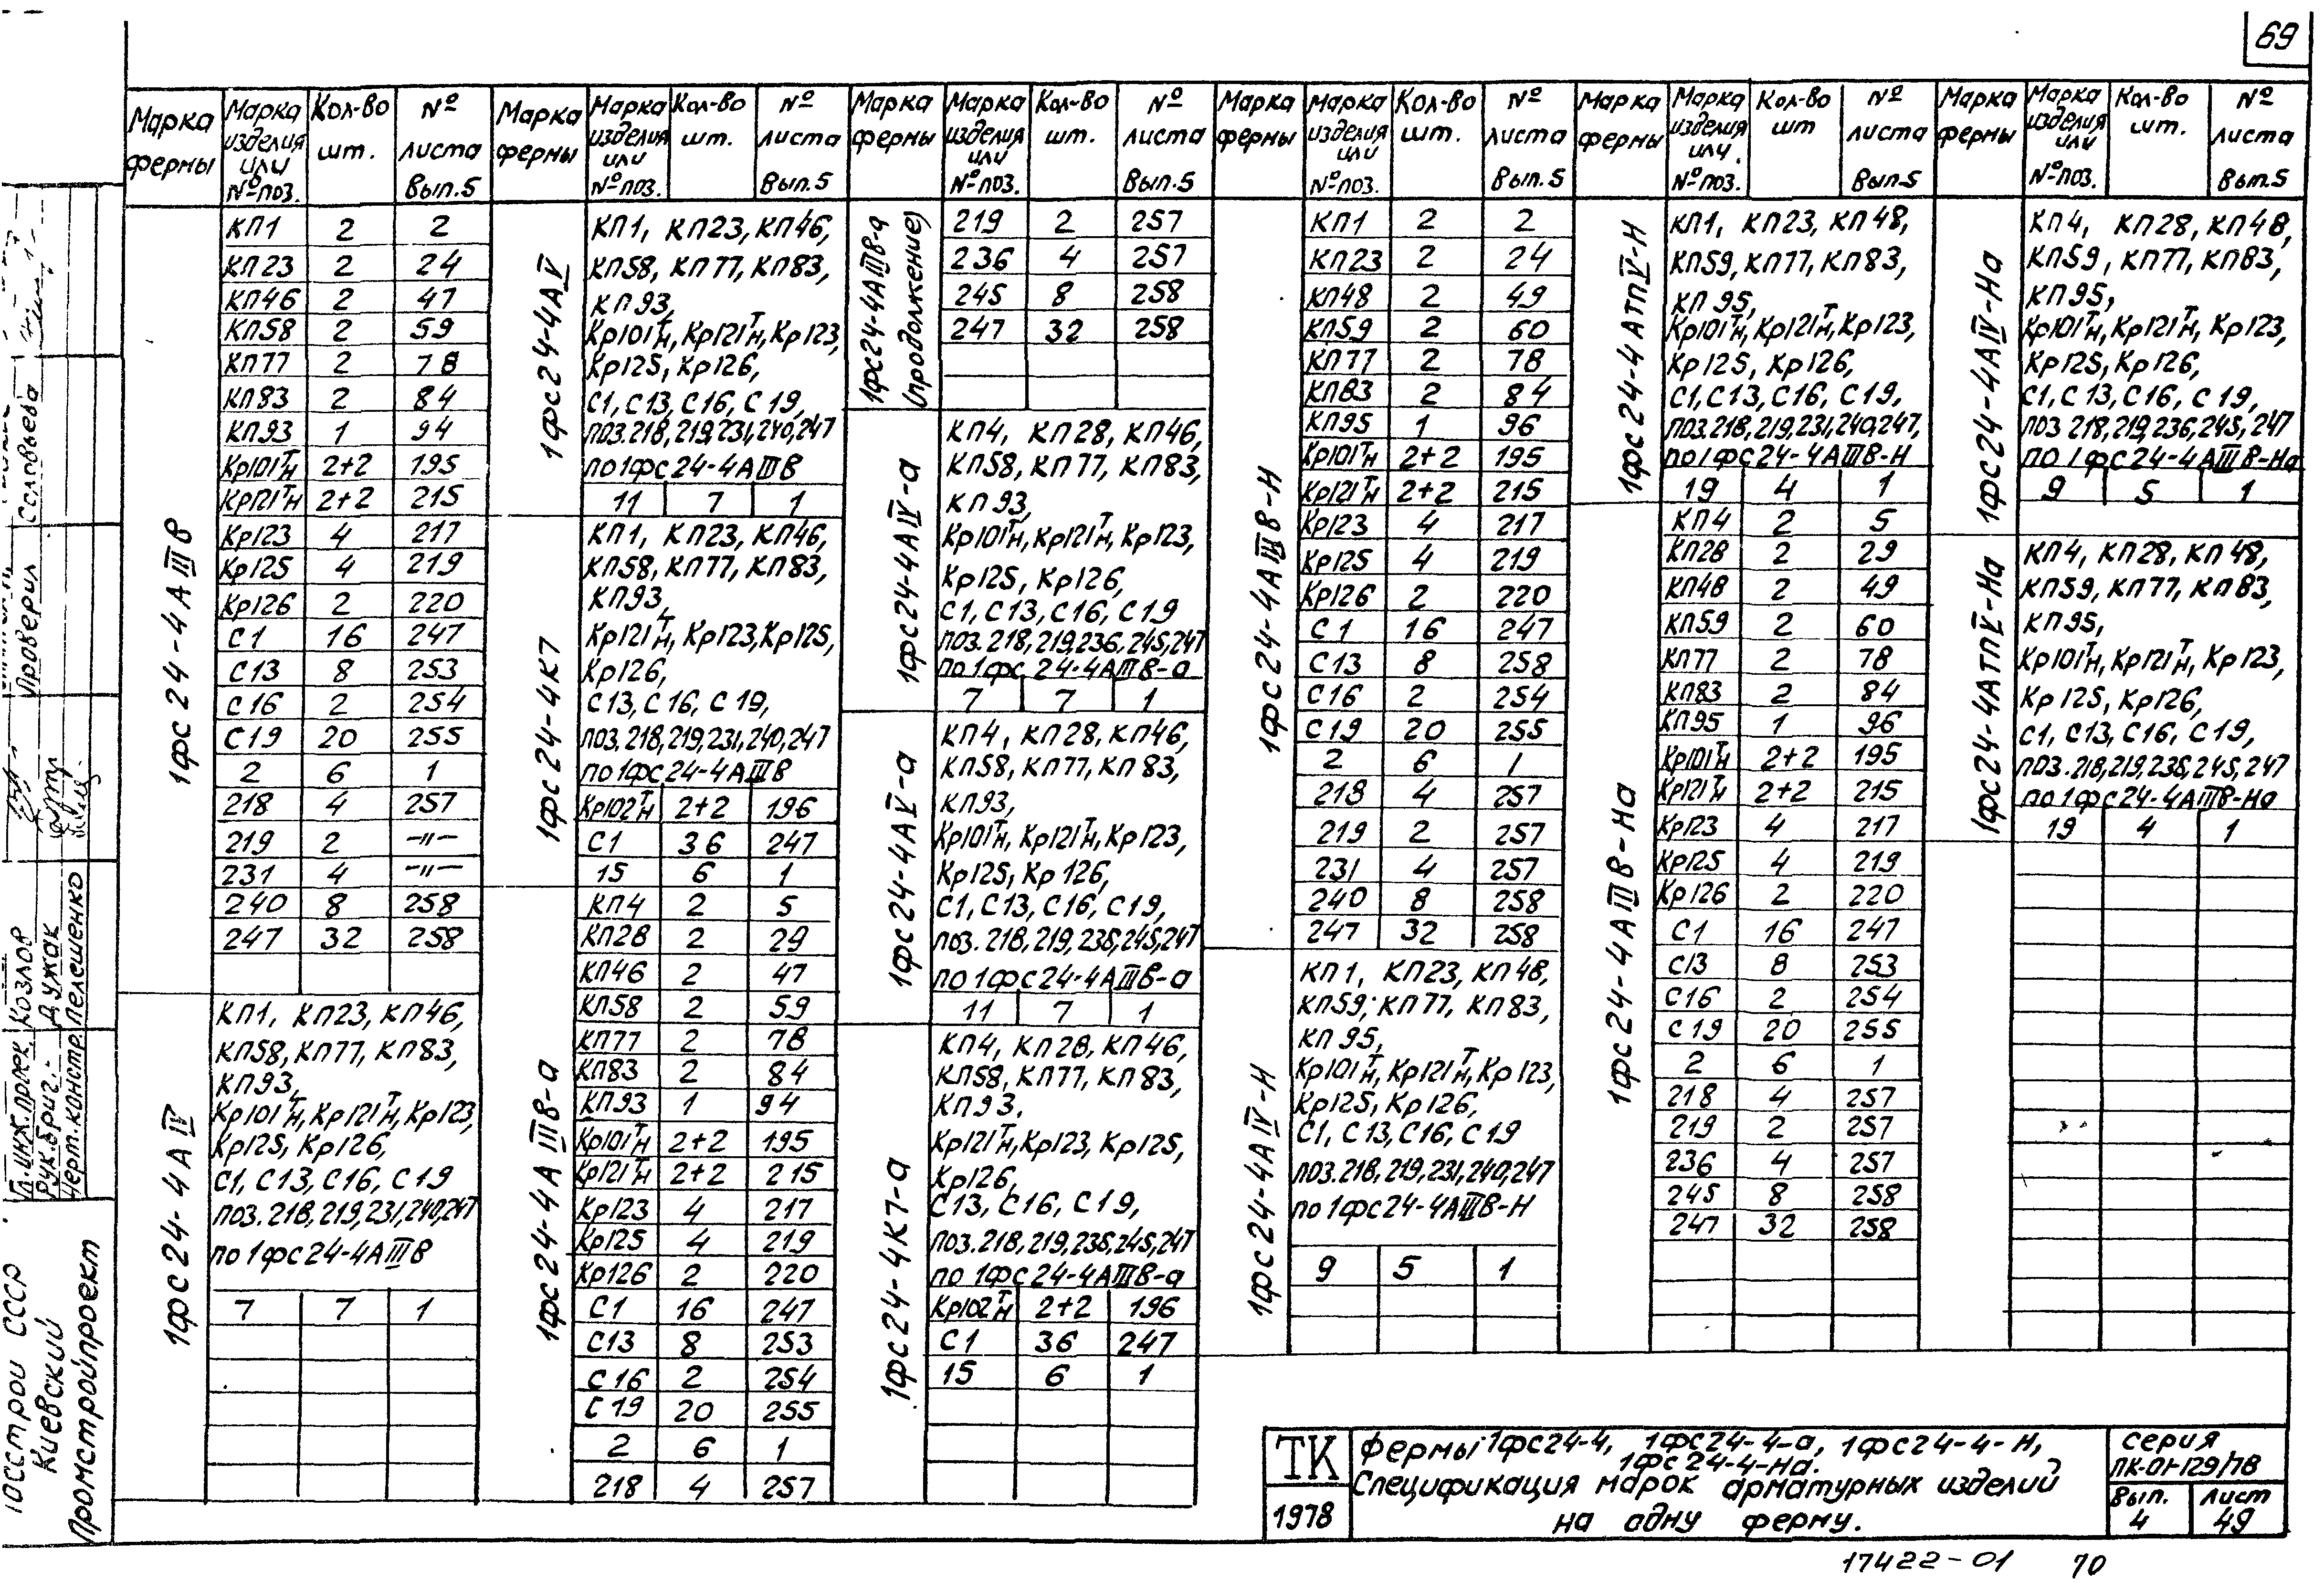 69
Марка фермы | Марка изделия или № поз. | Кол-во шт. | № листа Вып.5
1фс24-4АIIIв
КП1 2 2
КП23 2 24
КП46 2 47
КП58 2 59
КП77 2 78
КП83 2 84
КП93 1 94
Кр101тн 2+2 195
Кр121тн 2+2 215
Кр123 4 217
Кр125 4 219
Кр126 2 220
С1 16 247
С13 8 253
С16 2 254
С19 20 255
2 6 1
218 4 257
219 2 -"-
231 4 -"-
240 8 258
247 32 258
1фс24-4АIV
КП1, КП23, КП46,
КП58, КП77, КП83,
КП93,
Кр101тн, Кр121тн, Кр123,
Кр125, Кр126,
С1, С13, С16, С19
поз.218,219,231,240,247
по 1фс24-4АIIIв
7 7 1
Марка фермы | Марка изделия или № поз. | Кол-во шт. | № листа Вып.5
1фс24-4АV
КП1, КП23, КП46,
КП58, КП77, КП83,
КП93,
Кр101тн, Кр121тн, Кр123,
Кр125, Кр126,
С1, С13, С16, С19,
поз.218,219,231,240,247
по 1фс24-4АIIIв
11 7 1
1фс24-4К7
КП1, КП23, КП46,
КП58, КП77, КП83,
КП93,
Кр121тн, Кр123, Кр125,
Кр126,
С13, С16, С19,
поз.218,219,231,240,247
по 1фс24-4АIIIв
Кр102тн 2+2 196
С1 36 247
15 6 1
1фс24-4АIIIв-а
КП4 2 5
КП28 2 29
КП46 2 47
КП58 2 59
КП77 2 78
КП83 2 84
КП93 1 94
Кр101тн 2+2 195
Кр121тн 2+2 215
Кр123 4 217
Кр125 4 219
Кр126 2 220
С1 16 247
С13 8 253
С16 2 254
С19 20 255
2 6 1
218 4 257
Марка фермы | Марка изделия или № поз. | Кол-во шт. | № листа Вып.5
1фс24-4АIIIв-а (продолжение)
219 2 257
236 4 257
245 8 258
247 32 258
1фс24-4АIV-а
КП4, КП28, КП46,
КП58, КП77, КП83,
КП93,
Кр101тн, Кр121тн, Кр123,
Кр125, Кр126,
С1, С13, С16, С19
поз.218,219,236,245,247
по 1фс24-4АIIIв-а
7 7 1
1фс24-4АV-а
КП4, КП28, КП46,
КП58, КП77, КП83,
КП93,
Кр101тн, Кр121тн, Кр123,
Кр125, Кр126,
С1, С13, С16, С19,
поз.218,219,236,245,247
по 1фс24-4АIIIв-а
11 7 1
1фс24-4К7-а
КП4, КП28, КП46,
КП58, КП77, КП83,
КП93,
Кр121тн, Кр123, Кр125,
Кр126,
С13, С16, С19,
поз.218,219,236,245,247
по 1фс24-4АIIIв-а
Кр102тн 2+2 196
С1 36 247
15 6 1
Марка фермы | Марка изделия или № поз. | Кол-во шт. | № листа Вып.5
1фс24-4АIIIв-Н
КП1 2 2
КП23 2 24
КП48 2 49
КП59 2 60
КП77 2 78
КП83 2 84
КП95 1 96
Кр101тн 2+2 195
Кр121тн 2+2 215
Кр123 4 217
Кр125 4 219
Кр126 2 220
С1 16 247
С13 8 258
С16 2 254
С19 20 255
2 6 1
218 4 257
219 2 257
231 4 257
240 8 258
247 32 258
1фс24-4АIV-Н
КП1, КП23, КП48,
КП59, КП77, КП83,
КП95,
Кр101тн, Кр121тн, Кр123,
Кр125, Кр126,
С1, С13, С16, С19
поз.218,219,231,240,247
по 1фс24-4АIIIв-Н
9 5 1
Марка фермы | Марка изделия или № поз. | Кол-во шт | № листа Вып.5
1фс24-4АтпV-Н
КП1, КП23, КП48,
КП59, КП77, КП83,
КП95,
Кр101тн, Кр121тн, Кр123,
Кр125, Кр126,
С1, С13, С16, С19,
поз.218,219,231,240,247,
по 1фс24-4АIIIв-Н
19 4 1
1фс24-4АIIIв-На
КП4 2 5
КП28 2 29
КП48 2 49
КП59 2 60
КП77 2 78
КП83 2 84
КП95 1 96
Кр101тн 2+2 195
Кр121тн 2+2 215
Кр123 4 217
Кр125 4 219
Кр126 2 220
С1 16 247
С13 8 253
С16 2 254
С19 20 255
2 6 1
218 4 257
219 2 257
236 4 257
245 8 258
247 32 258
Марка фермы | Марка изделия или № поз. | Кол-во шт. | № листа Вып.5
1фс24-4АIV-На
КП4, КП28, КП48,
КП59, КП77, КП83,
КП95,
Кр101тн, Кр121тн, Кр123,
Кр125, Кр126,
С1, С13, С16, С19,
поз 218,219,236,245,247
по 1фс24-4АIIIв-На
9 5 1
1фс24-4АтпV-На
КП4, КП28, КП48,
КП59, КП77, КП83,
КП95,
Кр101тн, Кр121тн, Кр123,
Кр125, Кр126,
С1, С13, С16, С19,
поз.218,219,236,245,247
по 1фс24-4АIIIв-На
19 4 1
Госстрой СССР
Киевский
Промстройпроект
Гл.инж.проек. Козлов
Рук.бриг. Дужак
Черт.констр. Пелешенко
Проверил Соловьева
ТК
1978
Фермы 1фс24-4, 1фс24-4-а, 1фс24-4-Н,
1фс24-4-На.
Спецификация марок арматурных изделий
на одну ферму.
серия
ПК-01-129/78
Вып.
4
Лист
49
17422-01 70